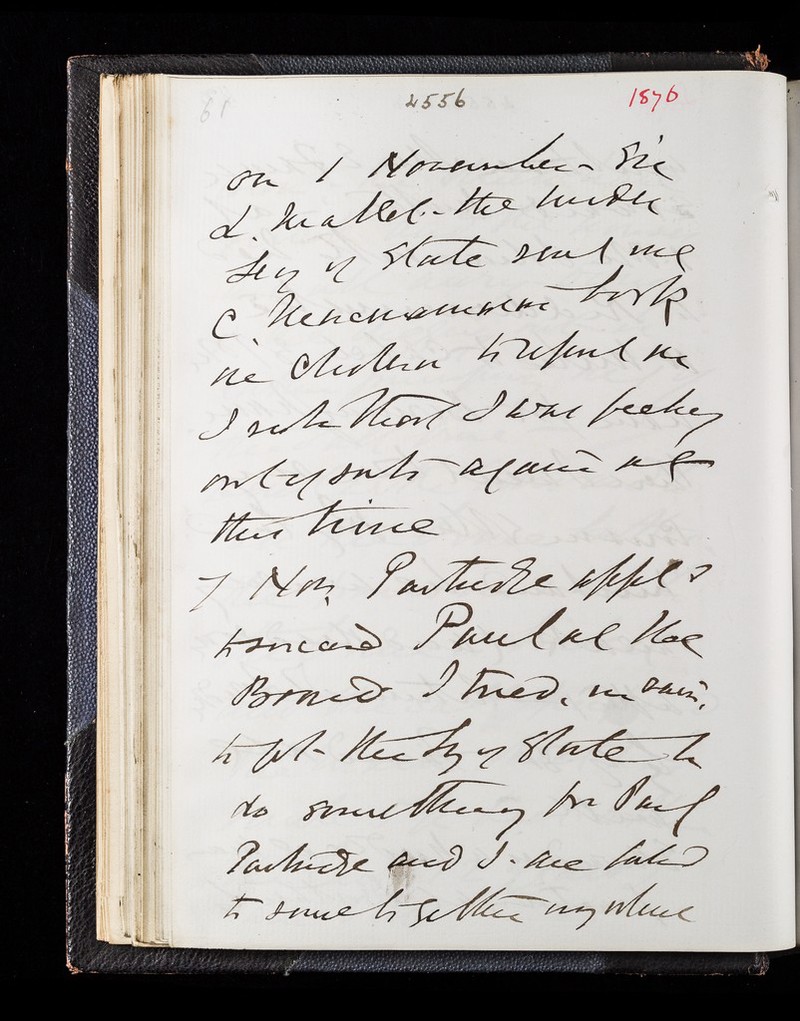 61
2556
1876
on 1 November - Sir
L. Mallet - the Under
Secy of State sent me
C Henchammer book
on Cholera to report on
I note that I was feeling
out of sorts again at
this time
7 Nov, Partridge appd
to succeed Paul at the
Board I tried, in vain,
to get the Sy of State to
do something for Paul
Partridge and I are fated
to some together anywhere